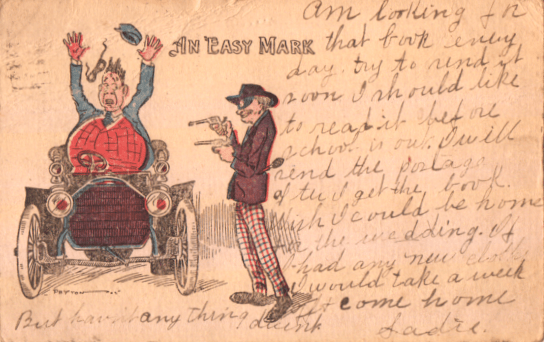 AN EASY MARK
Am looking for
that book every
day. try to send it
soon I should like
to read it before
school is out. I will
send the postage
after I get the book.
Wish I could be home
for the wedding. If
I had any new clothes
I would take a week
& come home
But havn't any thing
Sadie.